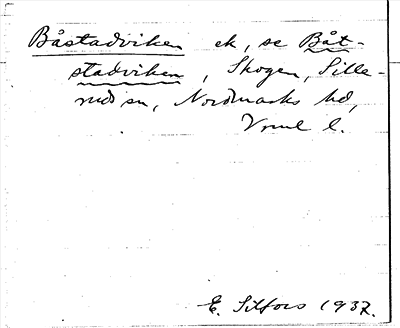 Båstadviken ek, se Båt-
stadviken, Skogen, Sille-
rud sn, Nordmarks hd,
Vrml l.
E. Sitfors 1937.